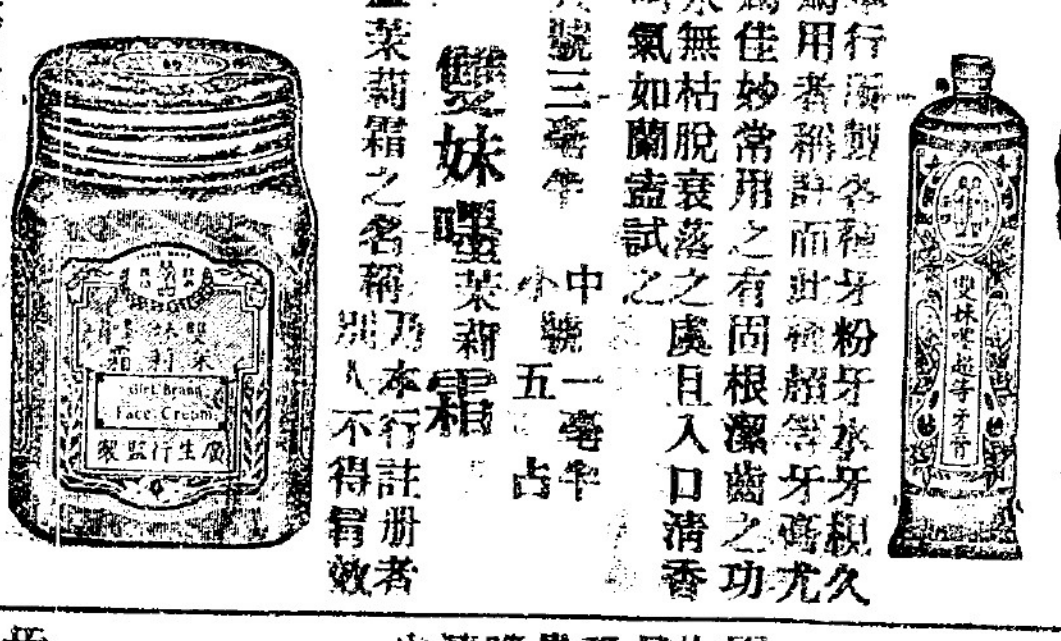 行所製各種牙粉牙水牙梘久
用者稱許而此種超等牙膏尤
佳妙常用之有固根潔齒之功
無枯脫衰落之虞且入口清香
氣如蘭盍試之
號三毫半
中號一毫半
小號五占
雙妹嚜茉莉霜
茉莉霜之名稱乃本行註册者
別人不得冒效
雙妹嚜超等牙膏
TRADE MARK
雙妹嚜
茉莉霜
Girl Brand
Face Cream
廣生行監製